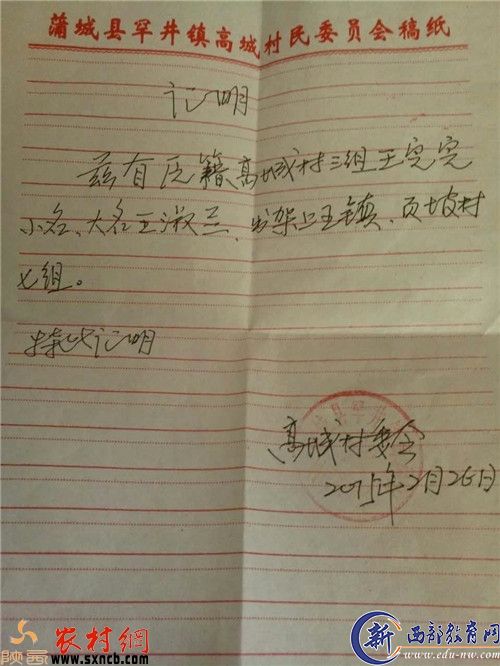 蒲城县罕井镇高城村民委员会稿纸
证明
兹有原籍高城村三组王完完
小名、大名王淑兰、出架上王镇、页坡村
七组。
特此证明
高城村委会
2015年2月26日
陕西
农村網
www.sxncb.com
新
西部教育网
www.edu-nw.com